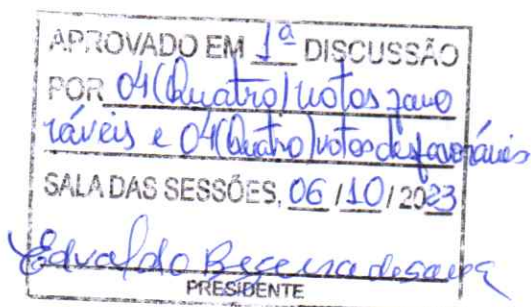 APROVADO EM 1ª DISCUSSÃO
POR 04 (Quatro) votos favo
ráveis e 04 (Quatro) votos desfavoráveis
SALA DAS SESSÕES, 06 / 10 / 2023
Edvaldo Bezerra de Souza
PRESIDENTE